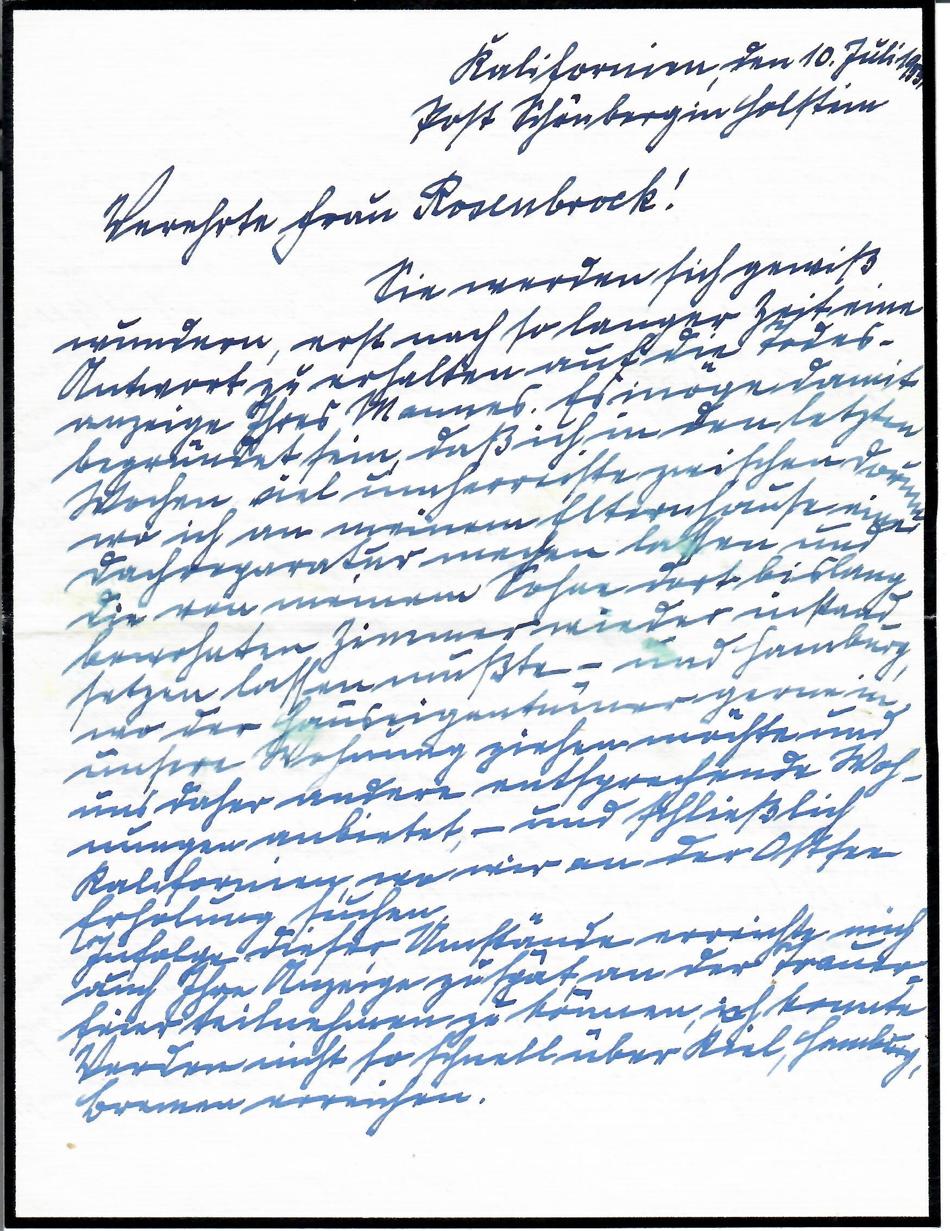 Kalifornien, den 10. Juli
Post Schönberg in Holstein
Verehrte Frau Rosenbrock!
Sie werden sich gewiß
wundern, erst nach so langer Zeit eine
Antwort zu erhalten auf die Todes-
anzeige Ihres Mannes. Es möge damit
begründet sein, daß ich in den letzten
Wochen viel umherreiste zwischen
wo ich an meinem Elternhause eine
Dachreparatur machen lassen und
die von meinem Sohne dort bislang
bewohnten Zimmer wieder instand
setzen lassen mußte - und Hamburg,
wo der Hauseigentümer gerne in
unsere Wohnung ziehen möchte und
uns daher andere entsprechende Woh-
nungen anbietet, - und schließlich
Kalifornien, wo wir an der Ostsee
Erholung suchen.
Infolge dieser Umstände erreichte mich
auch Ihre Anzeige zu spät an der Trauer-
feier teilnehmen zu können, ich konnte
Verden nicht so schnell über Kiel, Hamburg,
Bremen erreichen.